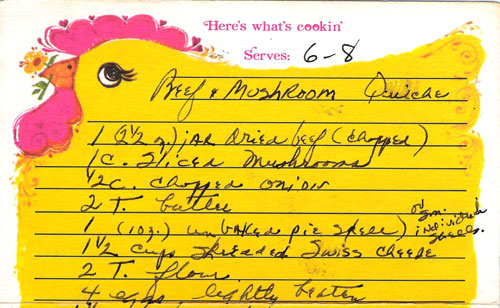 Here's what's cookin'
Serves: 6-8
Beef & Mushroom Quiche
1 (2½ oz) jar dried beef (chopped)
1 C. sliced mushrooms
½ C. chopped onion
2 T. butter
1 (10z.) unbaked pie shell) or sm. individual shells.
1 ½ cups shredded Swiss cheese
2 T. flour
4 eggs lightly beaten